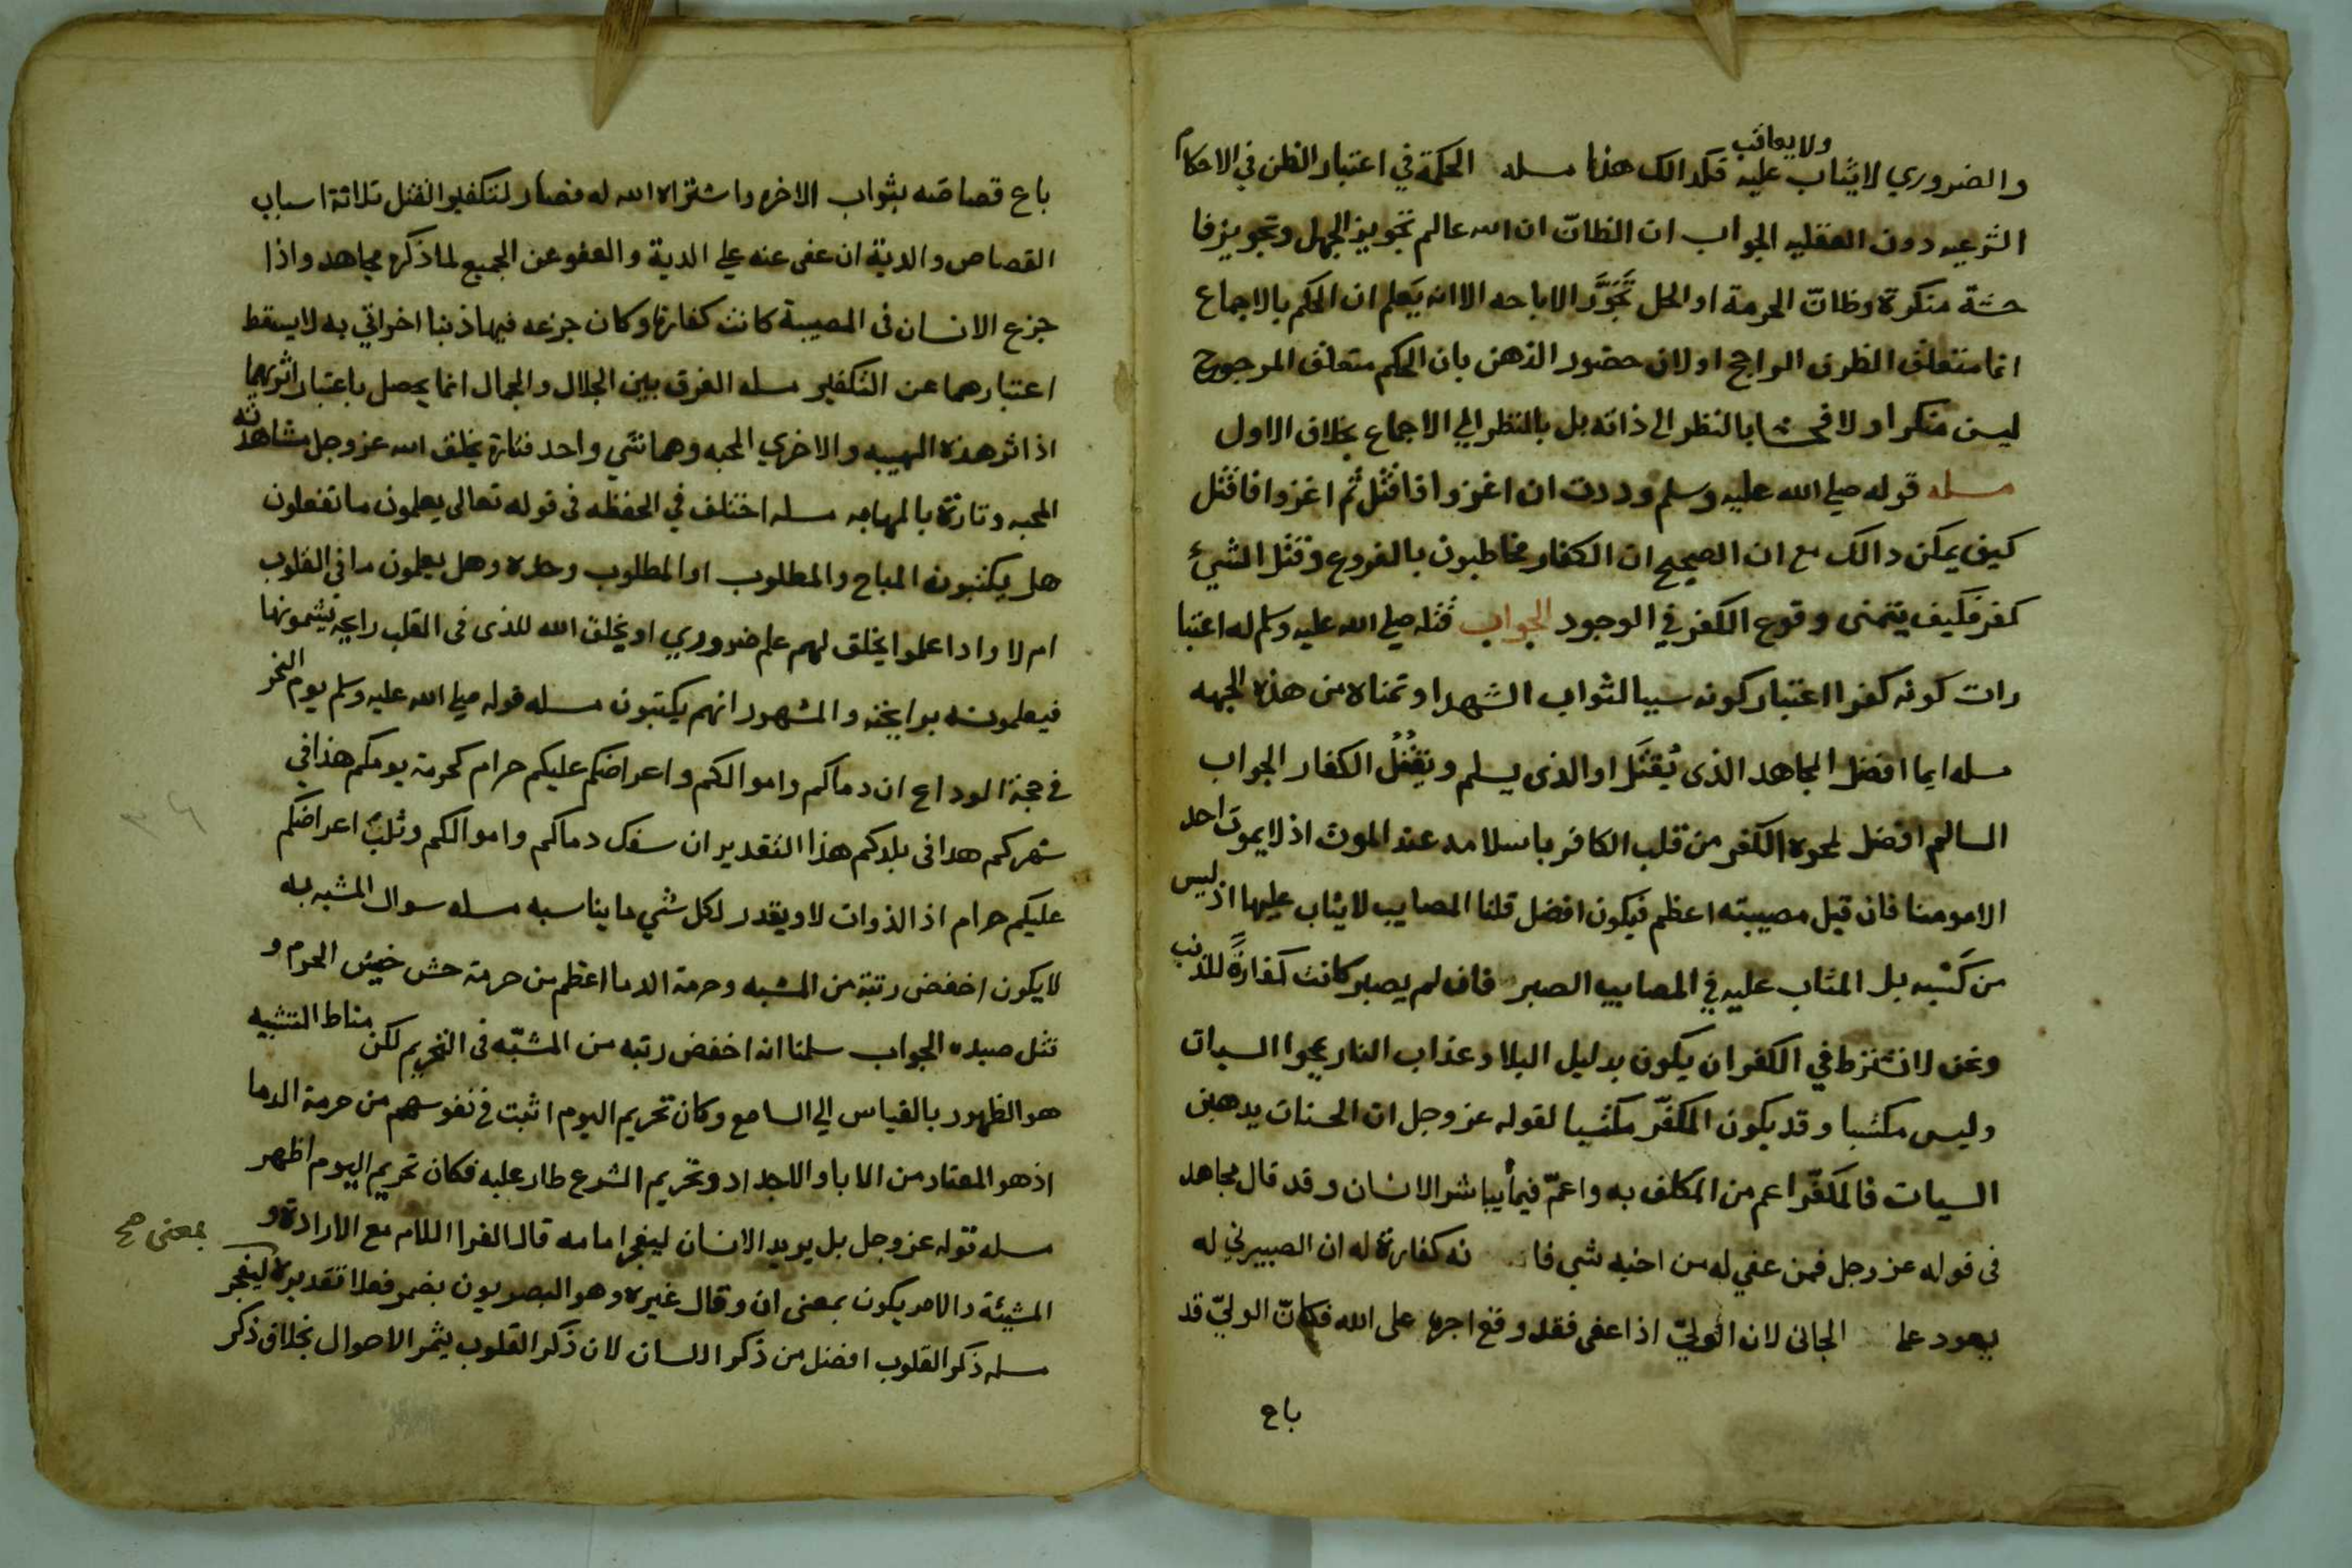 والضروري لايثاب عليه ولايعاقب فكدالك هذا مسله الحكمة في اعتبار الظن في الاحكام
الشرعيه دون العقليه الجواب ان الظانّ ان الله عالم تجويز الجهل وتجويز فا
حشة منكرة وظانّ الحرمة او الحل تجَوَّز الاباحه الا انه يَعلم ان الحكم بالاجماع
انما متعلق الظن الراجح او لان حضور الذهن بان الحكم متعلق المرجوح
ليس منكرا ولا فحشا بالنظر الى ذاته بل بالنظر الي الاجماع بخلاف الاول
مسله قوله صلي الله عليه وسلم وددت ان اغزوا فاقتل ثم اغزوا فاقتل
كيف يمكن دالك مع ان الصحيح ان الكفار مخاطبون بالفروع وقتل الشيء
كفر فكيف يتمنى وقوع الكفر في الوجود الجواب قتله صلي الله عليه وسلم له اعتبا
رات كونه كفرا اعتبار كونه سببا لثواب الشهدا وتمناه من هذه الجهه
مسله ايما افضل المجاهد الذى يُقتَل او الذى يسلم ويقتُل الكفار الجواب
السالم افضل لمحوه الكفر من قلب الكافر باسلامه عند الموت اذ لايموت احد
الا مومنا فان قيل مصيبته اعظم فيكون افضل قلنا المصايب لايثاب عليها اذ ليس
من كَسْبه بل المثاب عليه في المصايب الصبر فان لم يصبر كانت كفارةً للذنب
ونحن لا نشترط في الكفر ان يكون بدليل البلا وعذاب النار يمحوا السيات
وليس مكتسبا وقد يكون المكفّر مكتسبا لقوله عز وجل ان الحسنات يدهبن
السيات فالمكفّر اعم من المكلف به واعمّ فيما يباشر الانسان وقد قال مجاهد
فى قوله عز وجل فمن عفي له من اخيه شي فا نه كفارة له ان الضمير في له
يعود علىا الجانى لان الوليّ اذا عفى فقد وقع اجره على الله فكانّ الوليّ قد
باع
باع قصاصه بثواب الاخره واشتراه الله له فصار لتكفير القتل ثلاثة اسباب
القصاص والدية ان عفى عنه علي الدية والعفو عن الجميع لما ذكره مجاهد واذا
جزع الانسان فى المصيبة كانت كفارة وكان جزعه فيها ذنبا اخر اتي به لايسقط
اعتبارهما عن التكفير مسله الفرق بين الجلال والجمال انما يحصل باعتبار اثريهما
اذ اثر هذه الهيبه والاخري المحبه وهما شي واحد فتارة يخلق الله عز وجل مشاهدته
المحبه وتارة بالمهابه مسله اختلف في الحفظه فى قوله تعالى يعلمون ماتفعلون
هل يكتبون المباح والمطلوب او المطلوب وحده وهل يعلمون ما في القلوب
ام لا واداعلموا يخلق لهم علم ضروري او يخلق الله للذى فى القلب رايحه يشمونها
فيعلمونه برايحته والمشهور انهم يكتبون مسله قوله صلي الله عليه وسلم يوم النحر
في حجة الوداع ان دماكم واموالكم واعراضكم عليكم حرام كحرمة يومكم هذا في
شهركم هدا فى بلدكم هذا التقدير ان سفك دماكم واموالكم وثلب اعراضكم
عليكم حرام اذ الذوات لا ويقدر لكل شي ما يناسبه مسله سوال المشبه به
لايكون اخفض رتبة من المشبه وحرمة الدما اعظم من حرمة حش خشيش الحرم و
قتل صيده الجواب سلمنا انه اخفض رتبه من المشبّه فى التحريم لكن مناط التشبيه
هو الظهور بالقياس الي السامع وكان تحريم اليوم اثبت في نفوسهم من حرمة الدما
اذ هو المعتاد من الابا والاجداد وتحريم الشرع طار عليه فكان تحريم اليوم اظهر
مسله قوله عز وجل بل يريد الانسان ليفجر امامه قال الفرا اللام مع الارادة و
المشيئة والامر يكون بمعنى ان وقال غيره وهو البصريون بضمر فعلا تقديره ليفجر
بمعنى صح
مسله ذكر القلوب افضل من ذكر اللسان لان ذكر القلوب يثمر الاحوال بخلاف ذكر